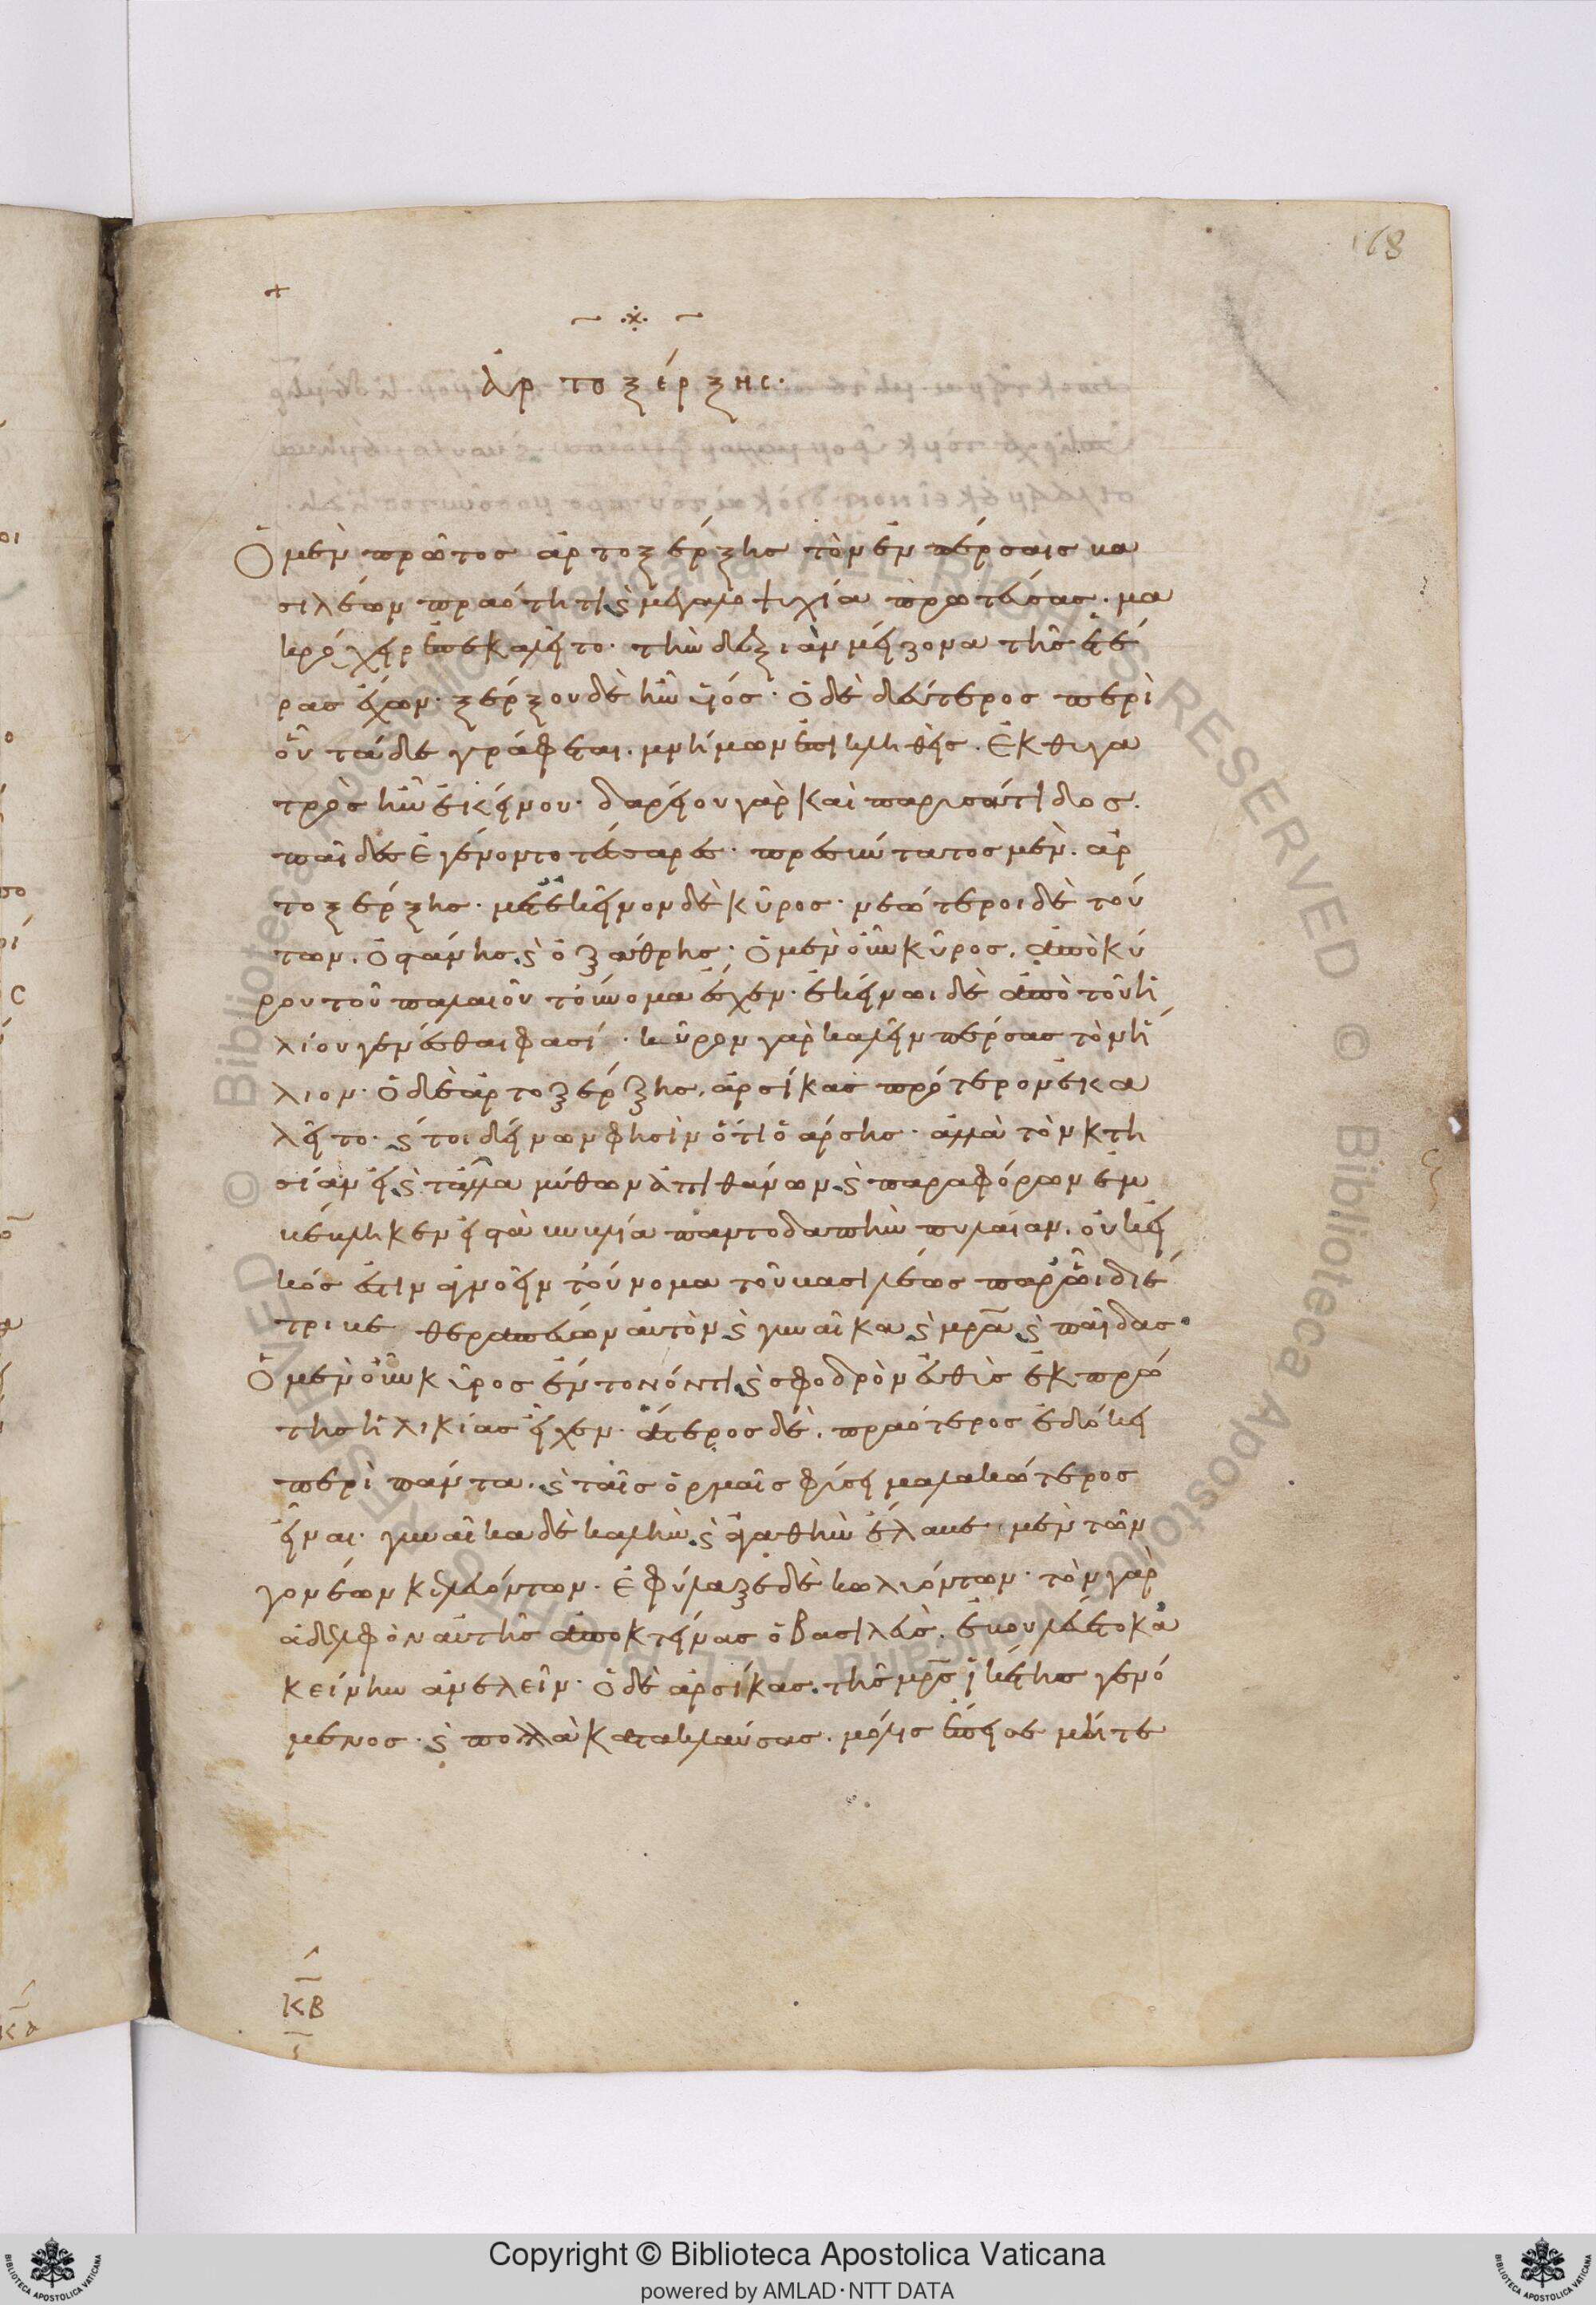 168
ἀρτοξέρξης.
Ὁ μὲν πρῶτος ἀρτοξέρξης τῶν ἐν πέρσαις βα
σιλέων πραότητι ϛ μεγαλοψυχία πρωτεύσας. μα
κρόχειρ ἐπεκαλεῖτο. τὴν δεξιὰν μείζονα τῆς ἑτέ
ρας ἔχων. ξέρξου δὲ ἦν υἱός. ὁ δὲ δεύτερος περὶ
οὗ τάδε γράφεται. μνήμων ἐπικληθεὶς. ἐκ θυγα
τρὸς ἦν ἐκείνου. δαρείου γὰρ καὶ παρυσάτιδος.
παῖδες ἐγένοντο τέσσαρες. πρεσβύτατος μὲν. ἀρ
τοξέρξης. μετ' ἐκεῖνον δὲ κῦρος. νεώτεροι δὲ τού
των. ὀστάνης ϛ ὀξάθρης. ὁ μὲν οὖν κῦρος. ἀπὸ κύ
ρου τοῦ παλαιοῦ τοὔνομα ἔσχεν. ἐκείνωι δὲ ἀπὸ τοῦ ἡ
λίου γενέσθαι φασί. κῦρον γὰρ καλεῖν πέρσας τὸν ἥ
λιον. ὁ δὲ ἀρτοξέρξης. ἀρσίκας πρότερον ἐκα
λεῖτο. ϛ τοι δείνων φησὶν ὅτι ὀάρσης. ἀλλὰ τὸν κτη
σίαν εἰ ϛ τἄλλα μύθων ἀπιθάνων ϛ παραφόρων ἐμ
βέβληκεν εἰς τὰ βιβλία παντοδαπὴν πυλαίαν. οὐκ εἰ
κός ἐστιν ἀγνοεῖν τοὔνομα τοῦ βασιλέως παρ' ὧι διέ
τριβε θεραπεύων αὐτὸν ϛ γυναῖκα ϛ μρα ϛ παῖδας.
Ὁ μὲν οὖν κῦρος ἔντονόν τι ϛ σφοδρὸν εὐθὺς ἐκ πρώ
της ἡλικίας εἶχεν. ἅτερος δὲ. πραότερος ἐδόκει
περὶ πάντα. ϛ ταῖς ὁρμαῖς φύσει μαλακώτερος
εἶναι. γυναῖκα δὲ καλὴν ϛ ἀγαθὴν ἔλαβε. μὲν τῶν
γονέων κελευόντων. ἐφύλαξε δὲ κωλυόντων. τὸν γὰρ
ἀδελφὸν αὐτῆς ἀποκτείνας ὁ βασιλεὺς. ἐβουλεύετο κἀ
κείνην ἀνελεῖν. ὁ δὲ ἀρσίκας. τῆς μρς ἱκέτης γενό
μενος. ϛ πολλὰ κατακλαύσας. μόλις ἔπεισε μήτε
ΚΒ
Copyright © Biblioteca Apostolica Vaticana
powered by AMLAD·NTT DATA